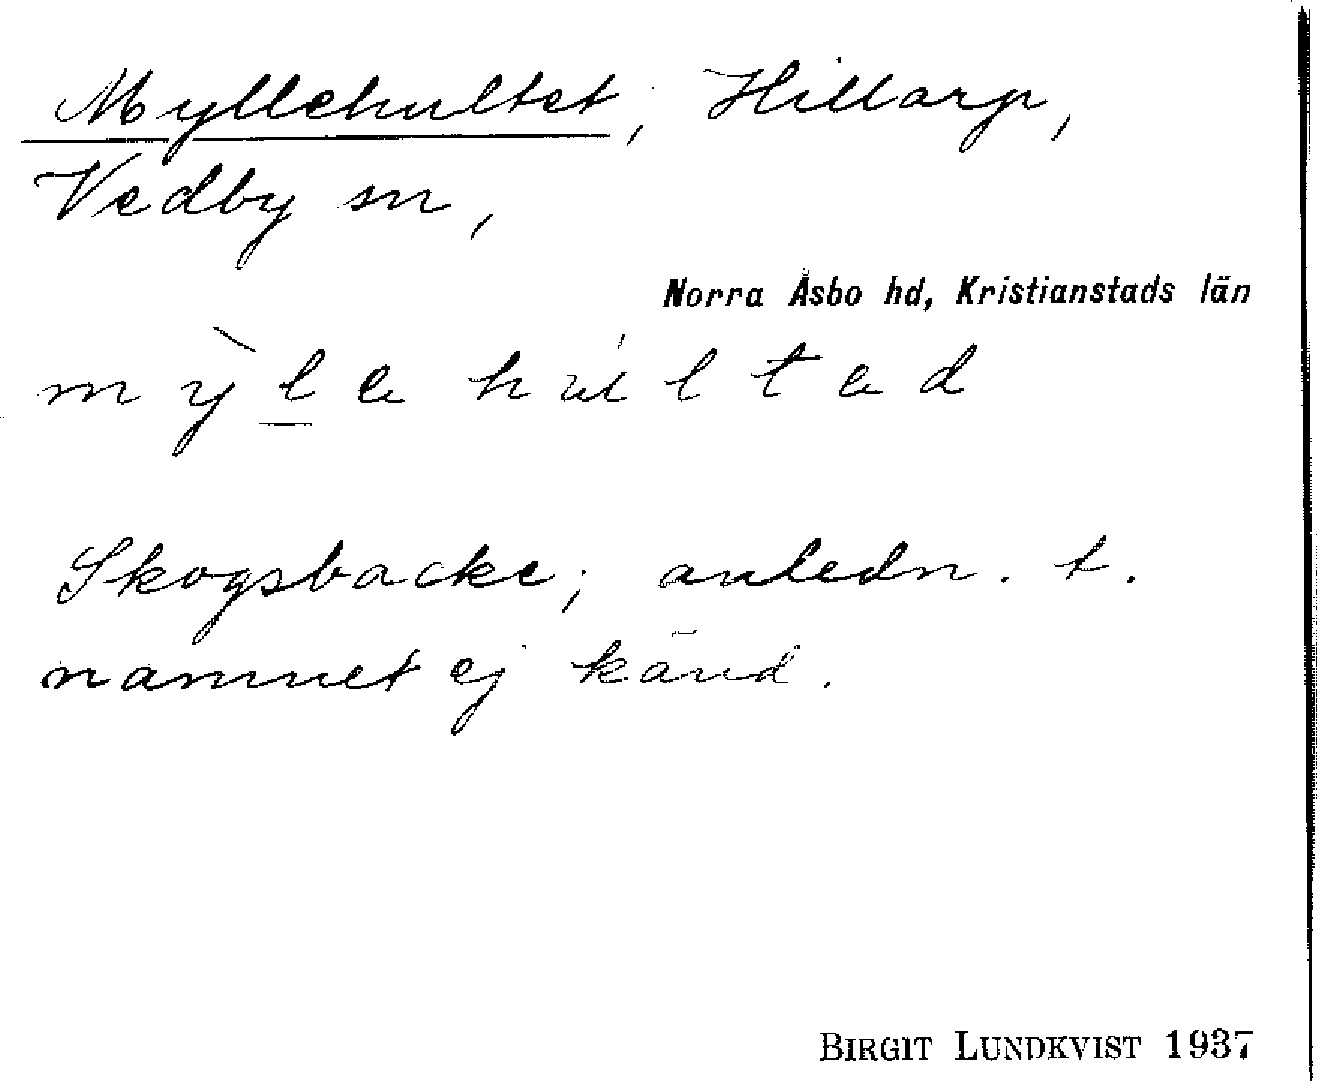 Myllehultet, Hillarp,
Vedby sn,
Norra Åsbo hd, Kristianstads län
mỳl̲e hu̍lted
Skogsbacke; anledn. t.
namnet ej känd.
BIRGIT LUNDKVIST 1937